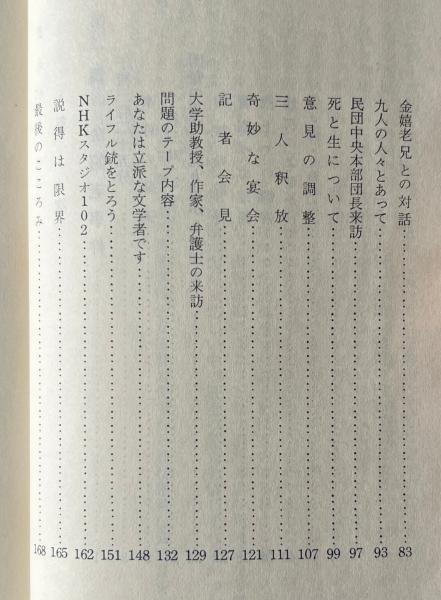 金嬉老兄との対話……83
九人の人々とあって……93
民団中央本部団長来訪……97
死と生について……99
意見の調整……107
三人釈放……111
奇妙な宴会……121
記者会見……127
大学助教授、作家、弁護士の来訪……129
問題のテープ内容……132
あなたは立派な文学者です……148
ライフル銃をとろう……151
NHKスタジオ102……162
説得は限界……165
最後のこころみ……168